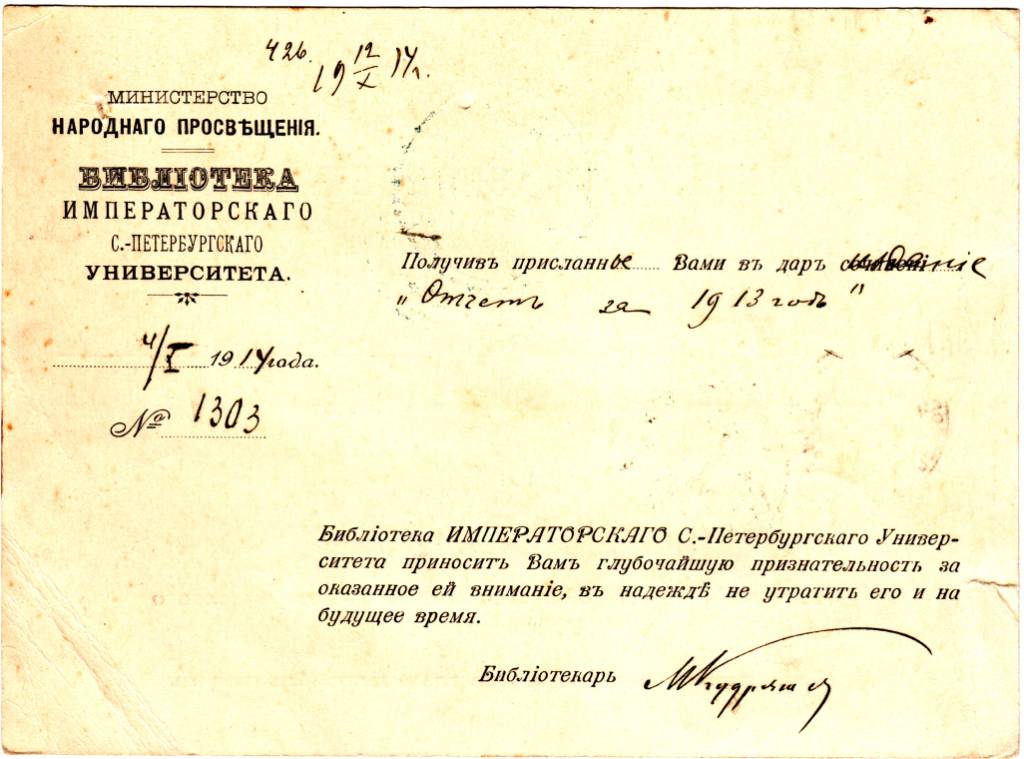 426.
19 12/X 14 г.
МИНИСТЕРСТВО
НАРОДНАГО ПРОСВѢЩЕНІЯ.
БИБЛІОТЕКА
ИМПЕРАТОРСКАГО
С.-ПЕТЕРБУРГСКАГО
УНИВЕРСИТЕТА.
4/X 1914 года.
№ 1303
Получивъ присланное Вами въ даръ изданіе
„Отчетъ за 1913 годъ“
Библіотека ИМПЕРАТОРСКАГО С.-Петербургскаго Универ-
ситета приноситъ Вамъ глубочайшую признательность за
оказанное ей вниманіе, въ надеждѣ не утратить его и на
будущее время.
Библіотекарь